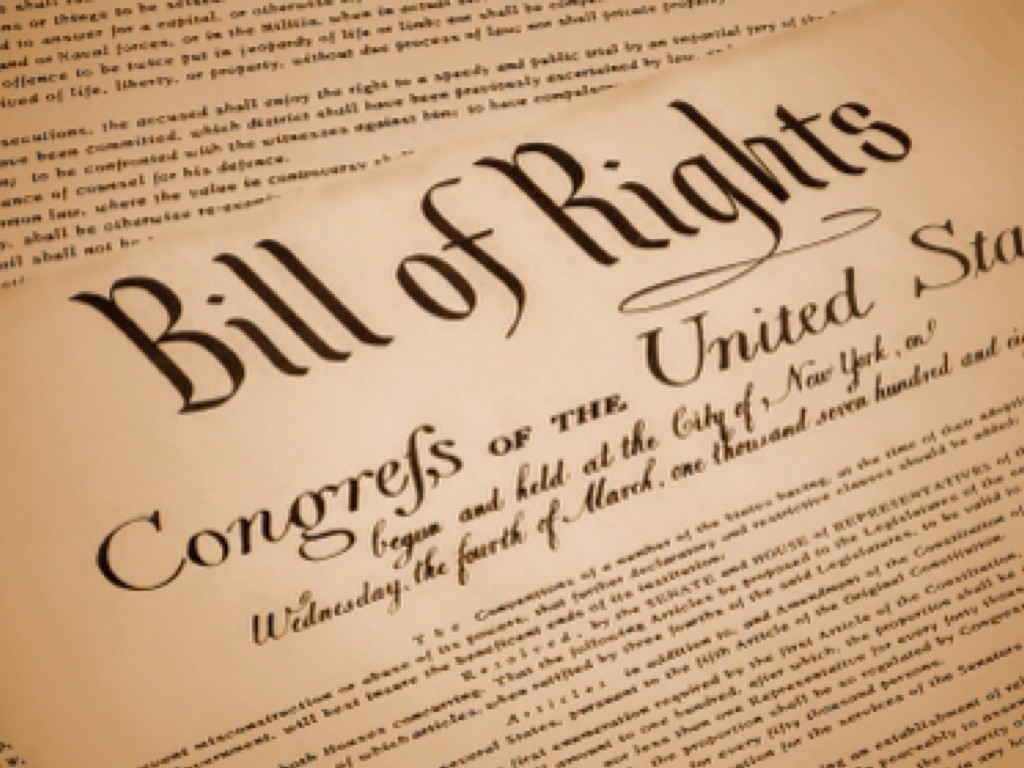 ns or things to be seized.
d to answer for a capital, or otherwise
and or Naval forces, or in the Militia, when in actual
offence to be twice put in jeopardy of life or limb; nor shall be compe
ived of life, liberty, or property, without due process of law; nor shall private property
secutions, the accused shall enjoy the right to a speedy and public trial by an impartial jury of the
ave been committed, which district shall have been previously ascertained by law, and
to be confronted with the witnesses against him; to have compulsor
ance of counsel for his defence.
mon law, where the value in controversy shall
shall be otherwise re-exami
ail shall not be
Bill of Rights
Congreſs OF THE United Sta
begun and held at the City of New York, on
Wednesday, the fourth of March, one thousand seven hundred and ei
The Conventions of a number of the States having, at the time of their adopti
misconstruction or abuse of its powers, that further declaratory and restrictive clauses should be added:
ernment, will best insure the beneficent ends of its institution;
Resolved, by the SENATE and HOUSE of REPRESENTATIVES of
both Houses concurring, That the following Articles be proposed to the Legislatures of the
of which articles, when ratified by three fourths of the said Legislatures, to be valid to
Articles in addition to, and Amendment of the Constitution of
several States, pursuant to the fifth Article of the Original Constitution.
first enumeration required by the first Article of the Constitution,
amount to one hundred, after which, the proportion shall be
nor less than one Representative for every forty thous
the proportion shall be so regulated by Congress
for every fifty thousand persons.
for the services of the Senators
an establishment of reli
peaceably to assem
the security of